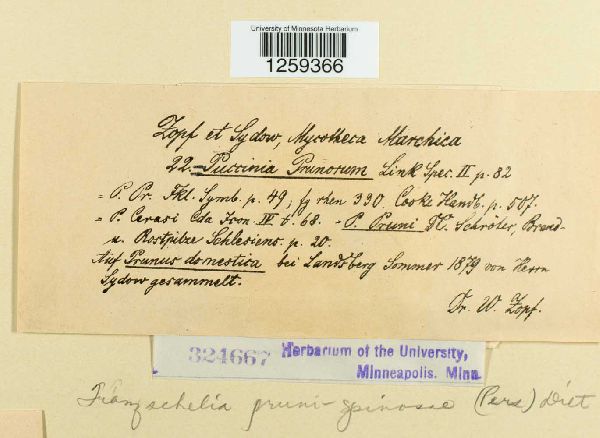 University of Minnesota Herbarium
1259366
Zopf et Sydow, Mycotheca Marchica
22. Puccinia Prunorum Link Spec. II p. 82
= P. Pr. Fkl. Symb. p. 49; fg rhen 390. Cooke Handb. p. 507.
= P. Cerasi Cda Icon. IV t. 68. = P. Pruni Schröter, Brand-
u. Rostpilze Schlesiens. p. 20.
Auf Prunus domestica bei Landsberg Sommer 1879 von Herrn
Sydow gesammelt.
Dr. W. Zopf.
324667 Herbarium of the University,
Minneapolis. Minn.
Tranzschelia pruni-spinosae (Pers) Diet